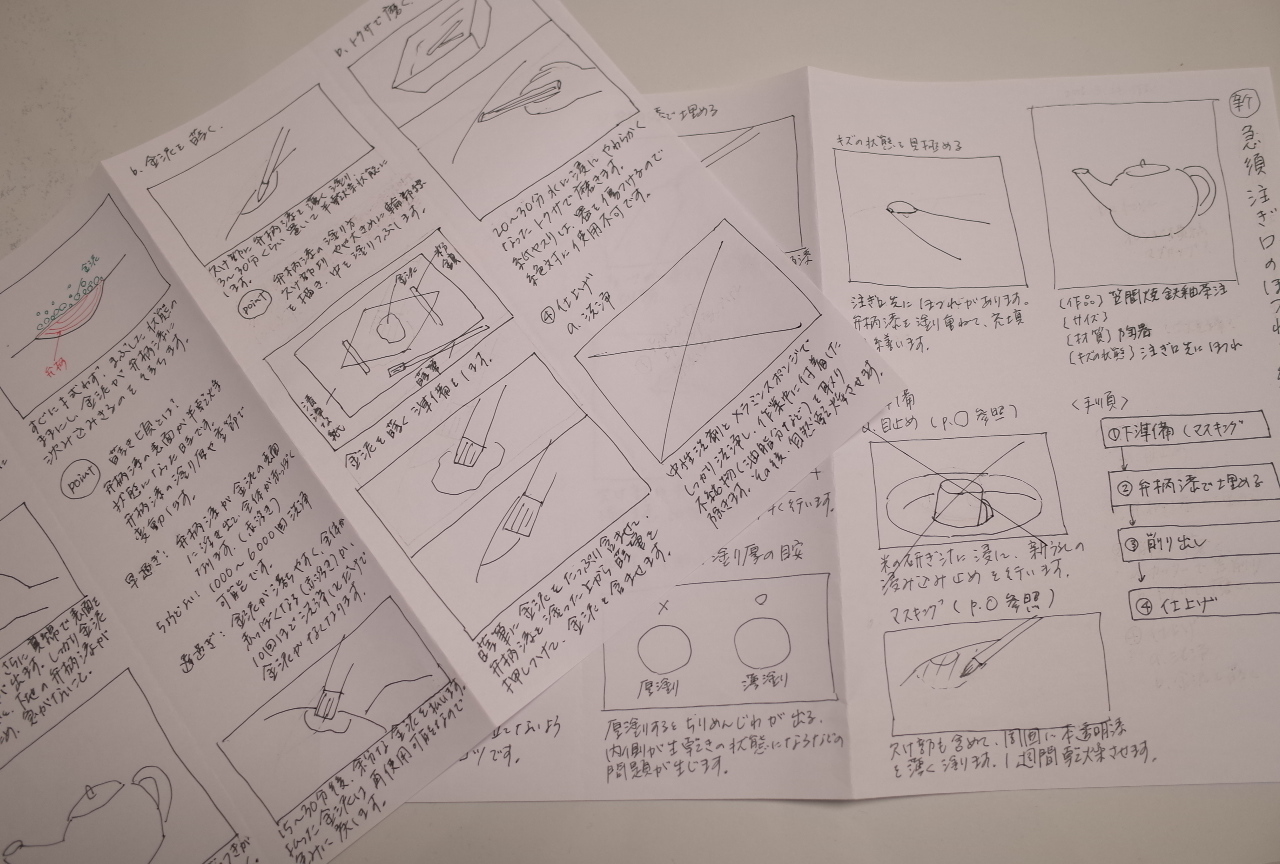 新
急須 注ぎ口のほつれ
キズの状態を見極める
注ぎ口先にほつれがあります。
弁柄漆を塗り重ねて、充填
(作品) 笠間焼鉄釉茶注
(サイズ)
(材質) 陶器
(キズの状態) 注ぎ口先にほつれ
<手順>
①下準備 (マスキング
②弁柄漆で埋める
③削り出し
④仕上げ
目止め (p.〇 参照)
米の研ぎ汁に浸し、
染み込み止めを行います。
マスキング (p.〇 参照)
欠け部も含めて、周囲に本透明漆
を薄く塗ります。1週間乾燥させます。
で埋める
塗り厚の目安
×
○
厚塗り
薄塗り
厚塗りするとちりめんじわが出る、
内側が生乾きの状態になるなどの
問題が生じます。
b. トクサで磨く
20〜30分水に漬けやわらかく
なったトクサで磨きます。
紙ヤスリは、器を傷つけるので
絶対に使用不可です。
④仕上げ
a. 洗浄
中性洗剤とメラミンスポンジで
しっかり洗浄し、作業中に付着した
不純物(油脂分など)を取り
除きます。その後、自然乾燥させます。
b. 金泥を蒔く
欠け部に弁柄漆を薄く塗り、
5〜30分くらい置いて半乾き状態に
します。
POINT
弁柄漆の塗り方
欠け部よりやや大きめに輪郭線
を描き、中を塗りつぶします。
金泥
粉鎮
蒔筆
清潔な紙
金泥を蒔く準備をします。
蒔筆に金泥をたっぷり含ませ、
弁柄漆を塗った上から蒔筆を
押しつけて、金泥を含ませます。
金泥
弁柄
すぐに払わず、まぶした状態の
ままにし、金泥が弁柄漆に
沈み込みきるのをまちます。
POINT
蒔きどきとは?
弁柄漆の表面が半乾き
状態になった時です。
弁柄漆の塗り厚や季節で
変動します。
早過ぎ：弁柄漆が金泥の表面
に浮き出て、全体が赤っぽく
なります。(赤浮き)
ちょうどよい：1000〜6000回洗浄
可能です。
遅過ぎ：金泥が落ちやすく、全体が
赤っぽくなる(赤浮き)か
10回ほど洗浄しただけで
金泥がなくなります。
15〜30分後、余分な金泥を払います。
払った金泥は、再使用可能なので
包みに戻します。